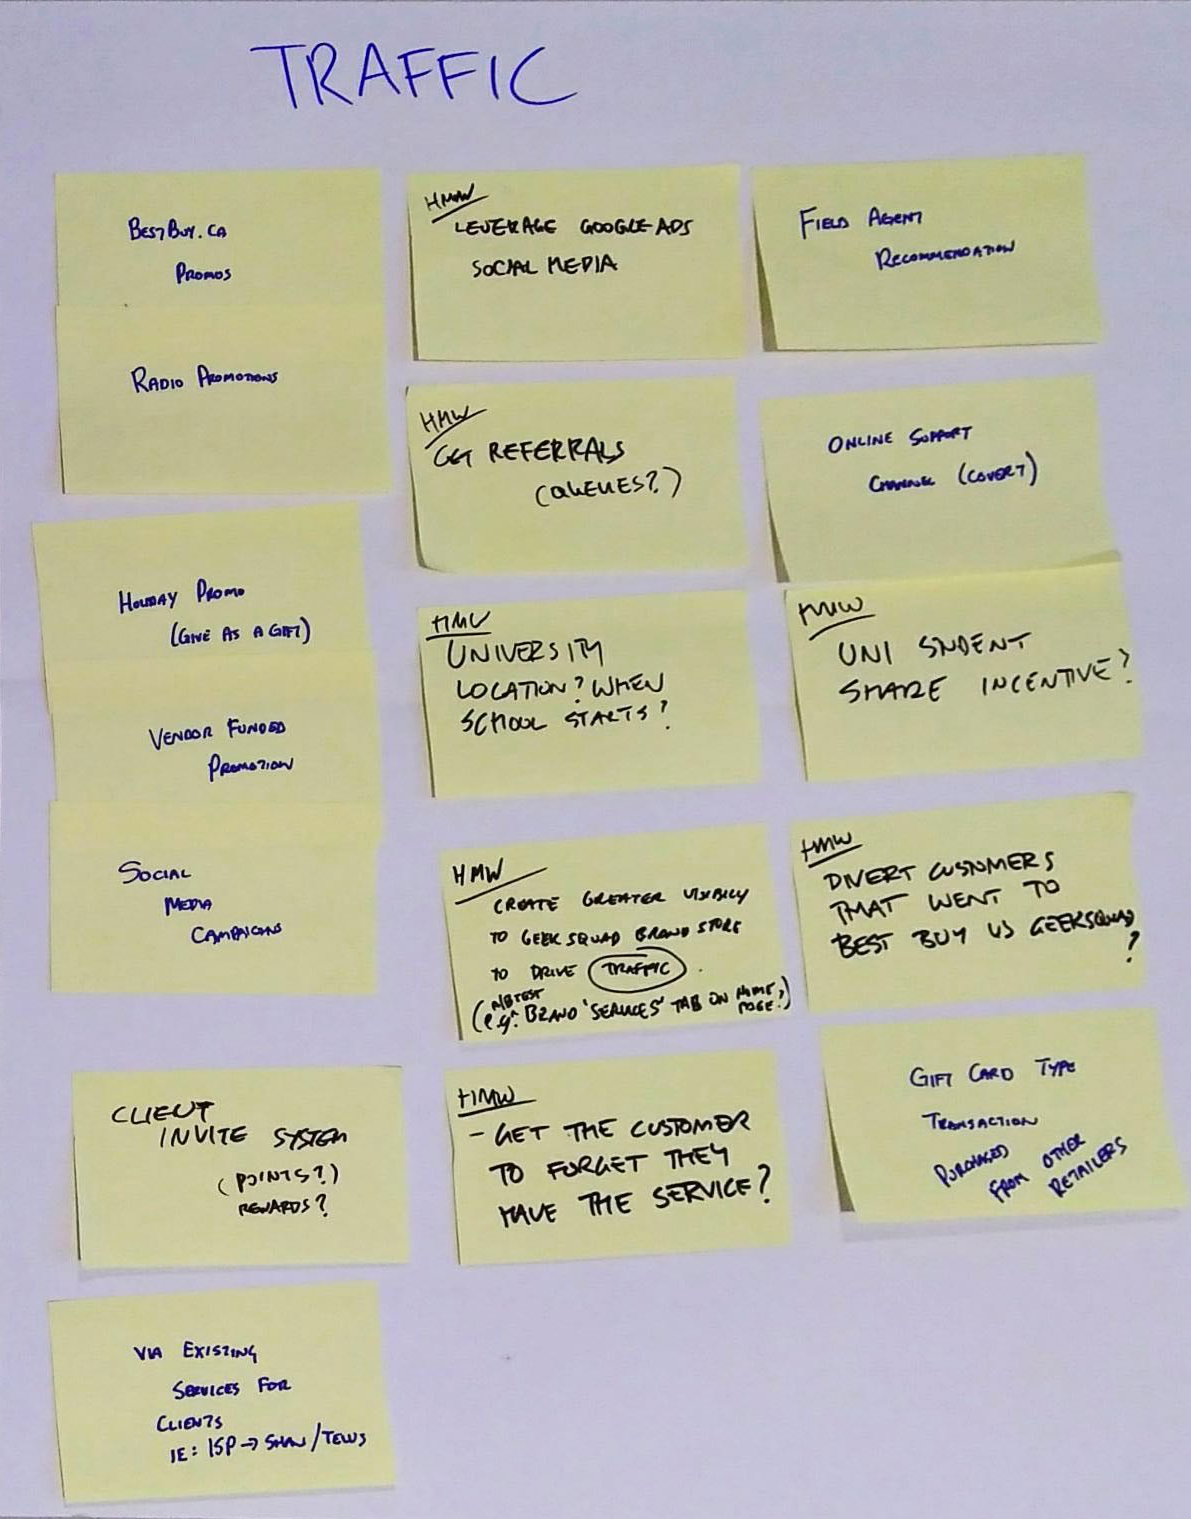 TRAFFIC
BESTBUY.CA
PROMOS
RADIO PROMOTIONS
HOLIDAY PROMO
(GIVE AS A GIFT)
VENDOR FUNDED
PROMOTION
SOCIAL
MEDIA
CAMPAIGNS
CLIENT
INVITE SYSTEM
(POINTS?)
REWARDS?
VIA EXISTING
SERVICES FOR
CLIENTS
IE: ISP → SHAW/TELUS
HMW
LEVERAGE GOOGLE ADS
SOCIAL MEDIA
HMW
GET REFERRALS
(QUEUES?)
HMW
UNIVERSITY
LOCATION? WHEN
SCHOOL STARTS?
HMW
CREATE GREATER VISIBILY
TO GEEK SQUAD BRAND STORE
TO DRIVE TRAFFIC.
A/B TEST
(e.g. BRAND 'SERVICES' TAB ON HOME PAGE?)
HMW
- GET THE CUSTOMER
TO FORGET THEY
HAVE THE SERVICE?
FIELD AGENT
RECOMMENDATION
ONLINE SUPPORT
CHANNEL (COVERT)
HMW
UNI STUDENT
SHARE INCENTIVE?
HMW
DIVERT CUSTOMERS
THAT WENT TO
BEST BUY VS GEEKSQUAD
?
GIFT CARD TYPE
TRANSACTION
PURCHASED
FROM OTHER
RETAILERS